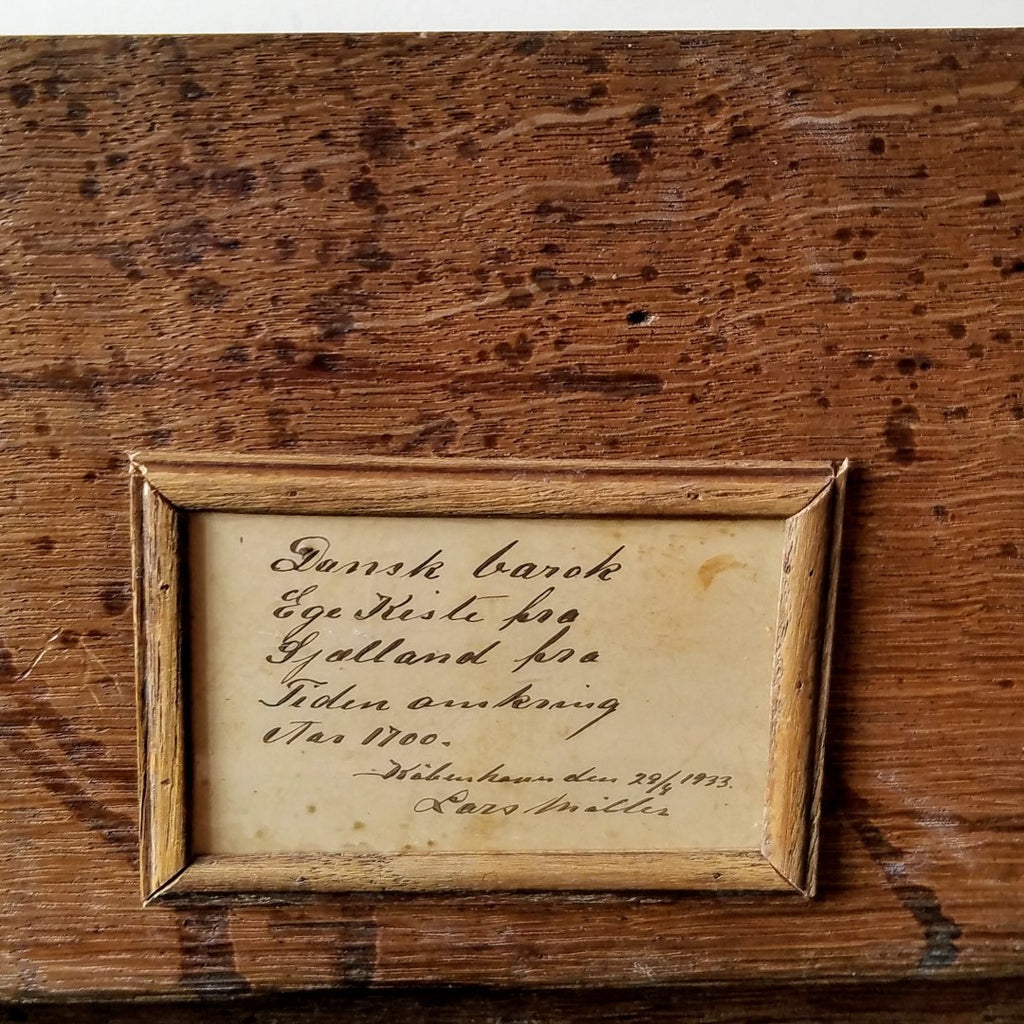 Dansk barok
Ege Kiste fra
Sjælland fra
Tiden omkring
Aar 1700.
København den 29/4 1933.
Lars Møller